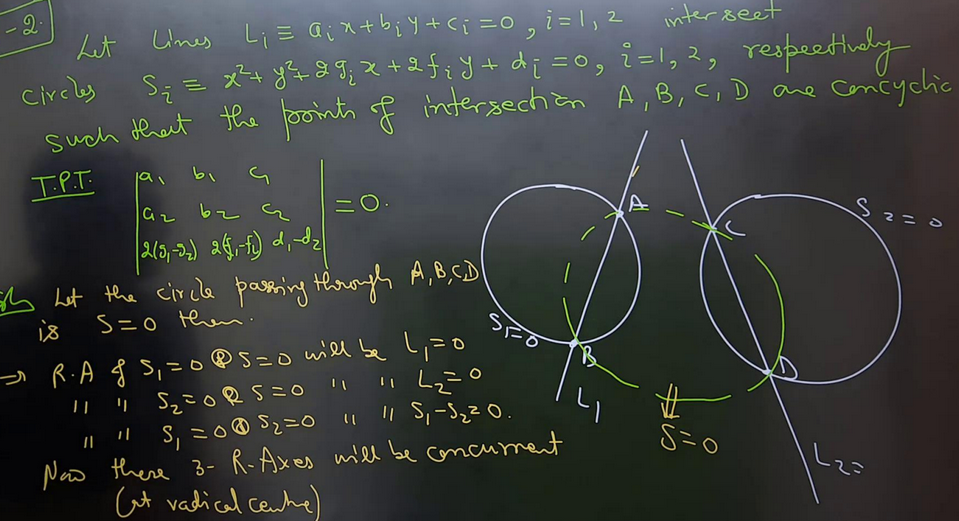 -2.
Let lines Lᵢ ≡ aᵢx + bᵢy + cᵢ = 0, i = 1, 2 intersect
circles Sᵢ ≡ x² + y² + 2gᵢx + 2fᵢy + dᵢ = 0, i = 1, 2, respectively
such that the points of intersection A, B, C, D are concyclic
T.P.T.
| a₁ b₁ c₁ |
| a₂ b₂ c₂ | = 0.
| 2(g₁-g₂) 2(f₁-f₂) d₁-d₂ |
Let the circle passing through A, B, C, D
is S = 0 then.
→ R.A of S₁ = 0 & S = 0 will be L₁ = 0
" " S₂ = 0 & S = 0 " " L₂ = 0
" " S₁ = 0 & S₂ = 0 " " S₁ - S₂ = 0.
Now these 3- R-Axes will be concurrent
(at radical centre)
A
C
S₂ = 0
S₁ = 0
B
D
L₁
S = 0
L₂ =